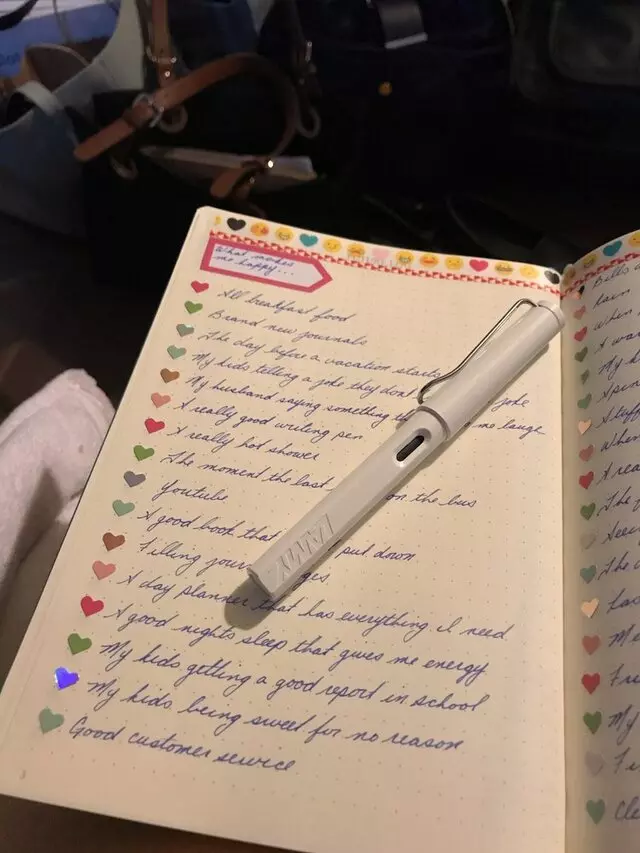 What makes
me happy...
All breakfast food
Brand new journals
The day before a vacation starts
My kids telling a joke they dont joke
My husband saying something th me laugh
A really good writing pen
A really hot shower
The moment the last on the bus
Youtube
A good book that put down
Filling jour ges
A day planner that has everything I need
A good nights sleep that gives me energy
My kids getting a good report in school
My kids being sweet for no reason
Good customer service
LAMY
Bills
rain
when
A war
My k
Spri
A stuff
When
A rea
The f
Seei
The
Las
Me
Fre
My
Fi
Cle